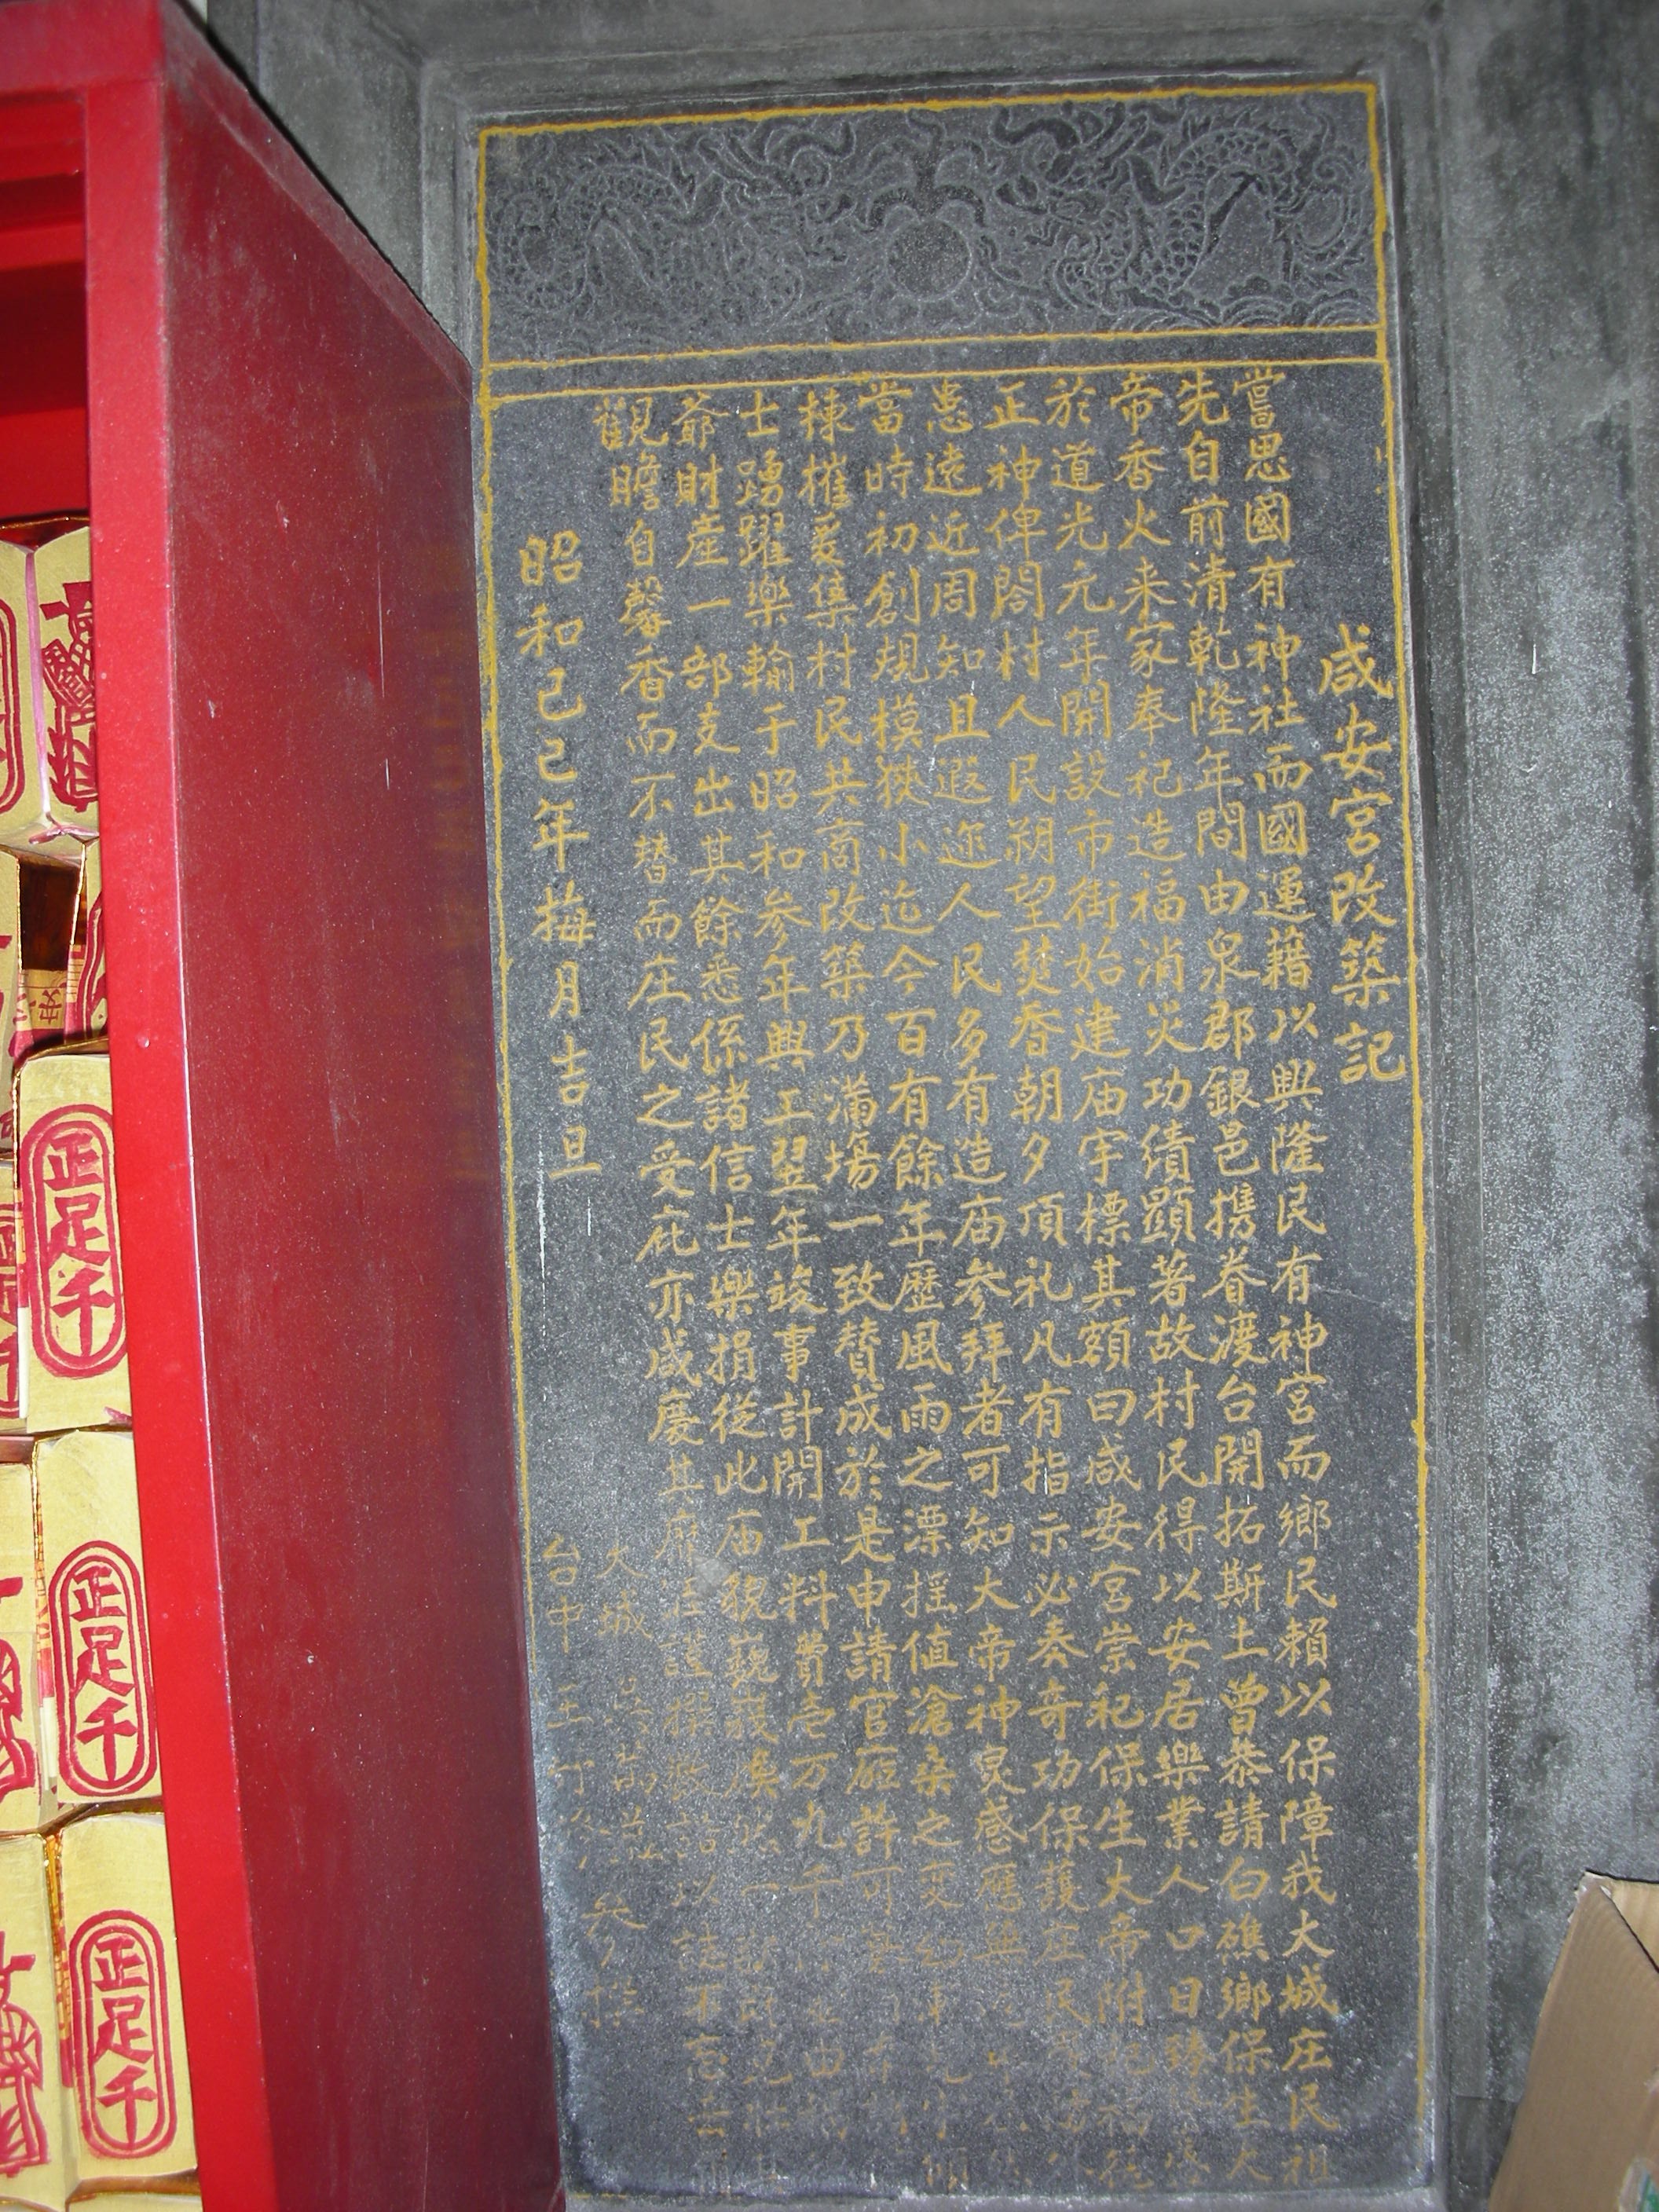 咸安宮改築記
嘗思國有神社而國運藉以興隆民有神宮而鄉民賴以保障我大城庄民祖
先自前清乾隆年間由泉郡銀邑携眷渡台開拓斯土曾恭請白礁鄉保生大
帝香火来家奉祀造福消災功績顯著故村民得以安居樂業人口日臻
於道光元年開設市街始建庙宇標其額曰咸安宮崇祀保生大帝附祀福德
正神俾閤村人民朔望焚香朝夕頂礼凡有指示必奏奇功保護庄民
遠近周知且遐迩人民多有造庙参拜者可知大帝神灵感應
當時初創規模狹小迄今百有餘年歷風雨之漂摇值滄桑之变
棟榷爰集村民共商改築乃滿場一致賛成於是申請官廳許可
士踴躍樂輸于昭和参年興工翌年竣事計開工料費壱万九千
爺財產一部支出其餘悉係諸信士樂捐從此庙貌巍峩
觀瞻自馨香而不替而庄民之受庇亦咸慶其 謹撰 以誌不忘云
昭和己巳年梅月吉旦
大城
台中
正足千
正足千
正足千